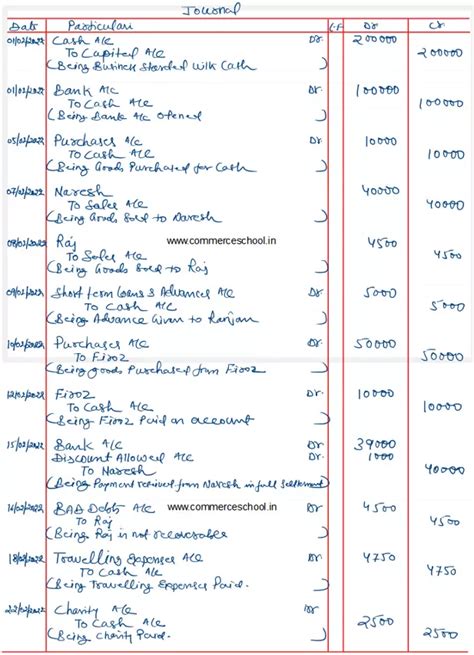 Journal
Date Particulars L.F Dr Cr
01/02/2022 Cash A/c Dr. 200000
To Capital A/c 200000
(Being Business Started with Cash)
01/02/2022 Bank A/c Dr. 100000
To Cash A/c 100000
(Being Bank A/c opened)
05/02/2022 Purchases A/c Dr 10000
To Cash A/c 10000
(Being Goods Purchased for Cash)
07/02/2022 Naresh 40000
To Sales A/c 40000
(Being Goods Sold to Naresh)
www.commerceschool.in
08/02/2022 Raj 4500
To Sales A/c 4500
(Being Goods Sold to Raj)
09/02/2022 Short term loans & Advances A/c Dr 5000
To Cash A/c 5000
(Being Advance Given to Ranjan)
10/02/2022 Purchases A/c Dr. 50000
To Firoz 50000
(Being goods Purchased from Firoz)
12/02/2022 Firoz Dr. 10000
To Cash A/c 10000
(Being Firoz Paid on account)
15/02/2022 Bank A/c Dr. 39000
Discount Allowed A/c Dr. 1000
To Naresh 40000
(Being Payment received from Naresh in full Settlement)
www.commerceschool.in
16/02/2022 BAD Debts A/c Dr 4500
To Raj 4500
(Being Raj is not recoverable)
18/02/2022 Travelling Expenses A/c Dr 4750
To Cash A/c 4750
(Being Travelling Expenses Paid.)
22/02/2022 Charity A/c Dr
To Cash A/c 2500 2500
(Being Charity Paid.)